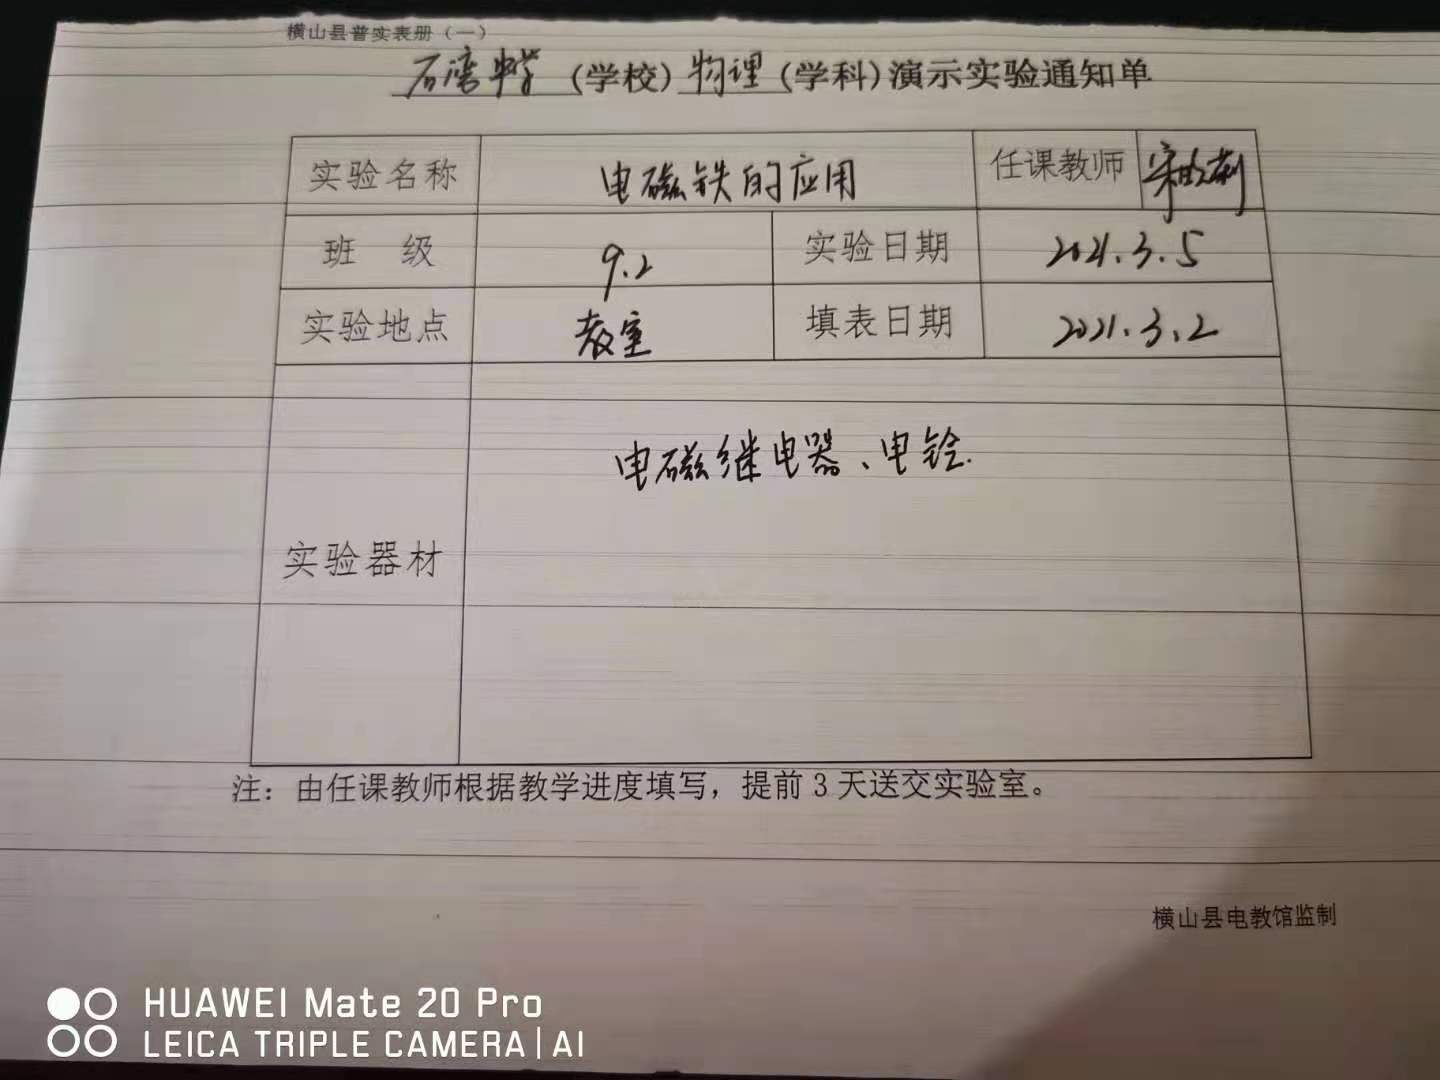 横山县普实表册（一）
石湾中学（学校）物理（学科）演示实验通知单
实验名称 电磁铁的应用 任课教师
班 级 9.2 实验日期 2021.3.5
实验地点 教室 填表日期 2021.3.2
电磁继电器、电铃.
实验器材
注：由任课教师根据教学进度填写，提前3天送交实验室。
横山县电教馆监制
HUAWEI Mate 20 Pro
LEICA TRIPLE CAMERA | AI